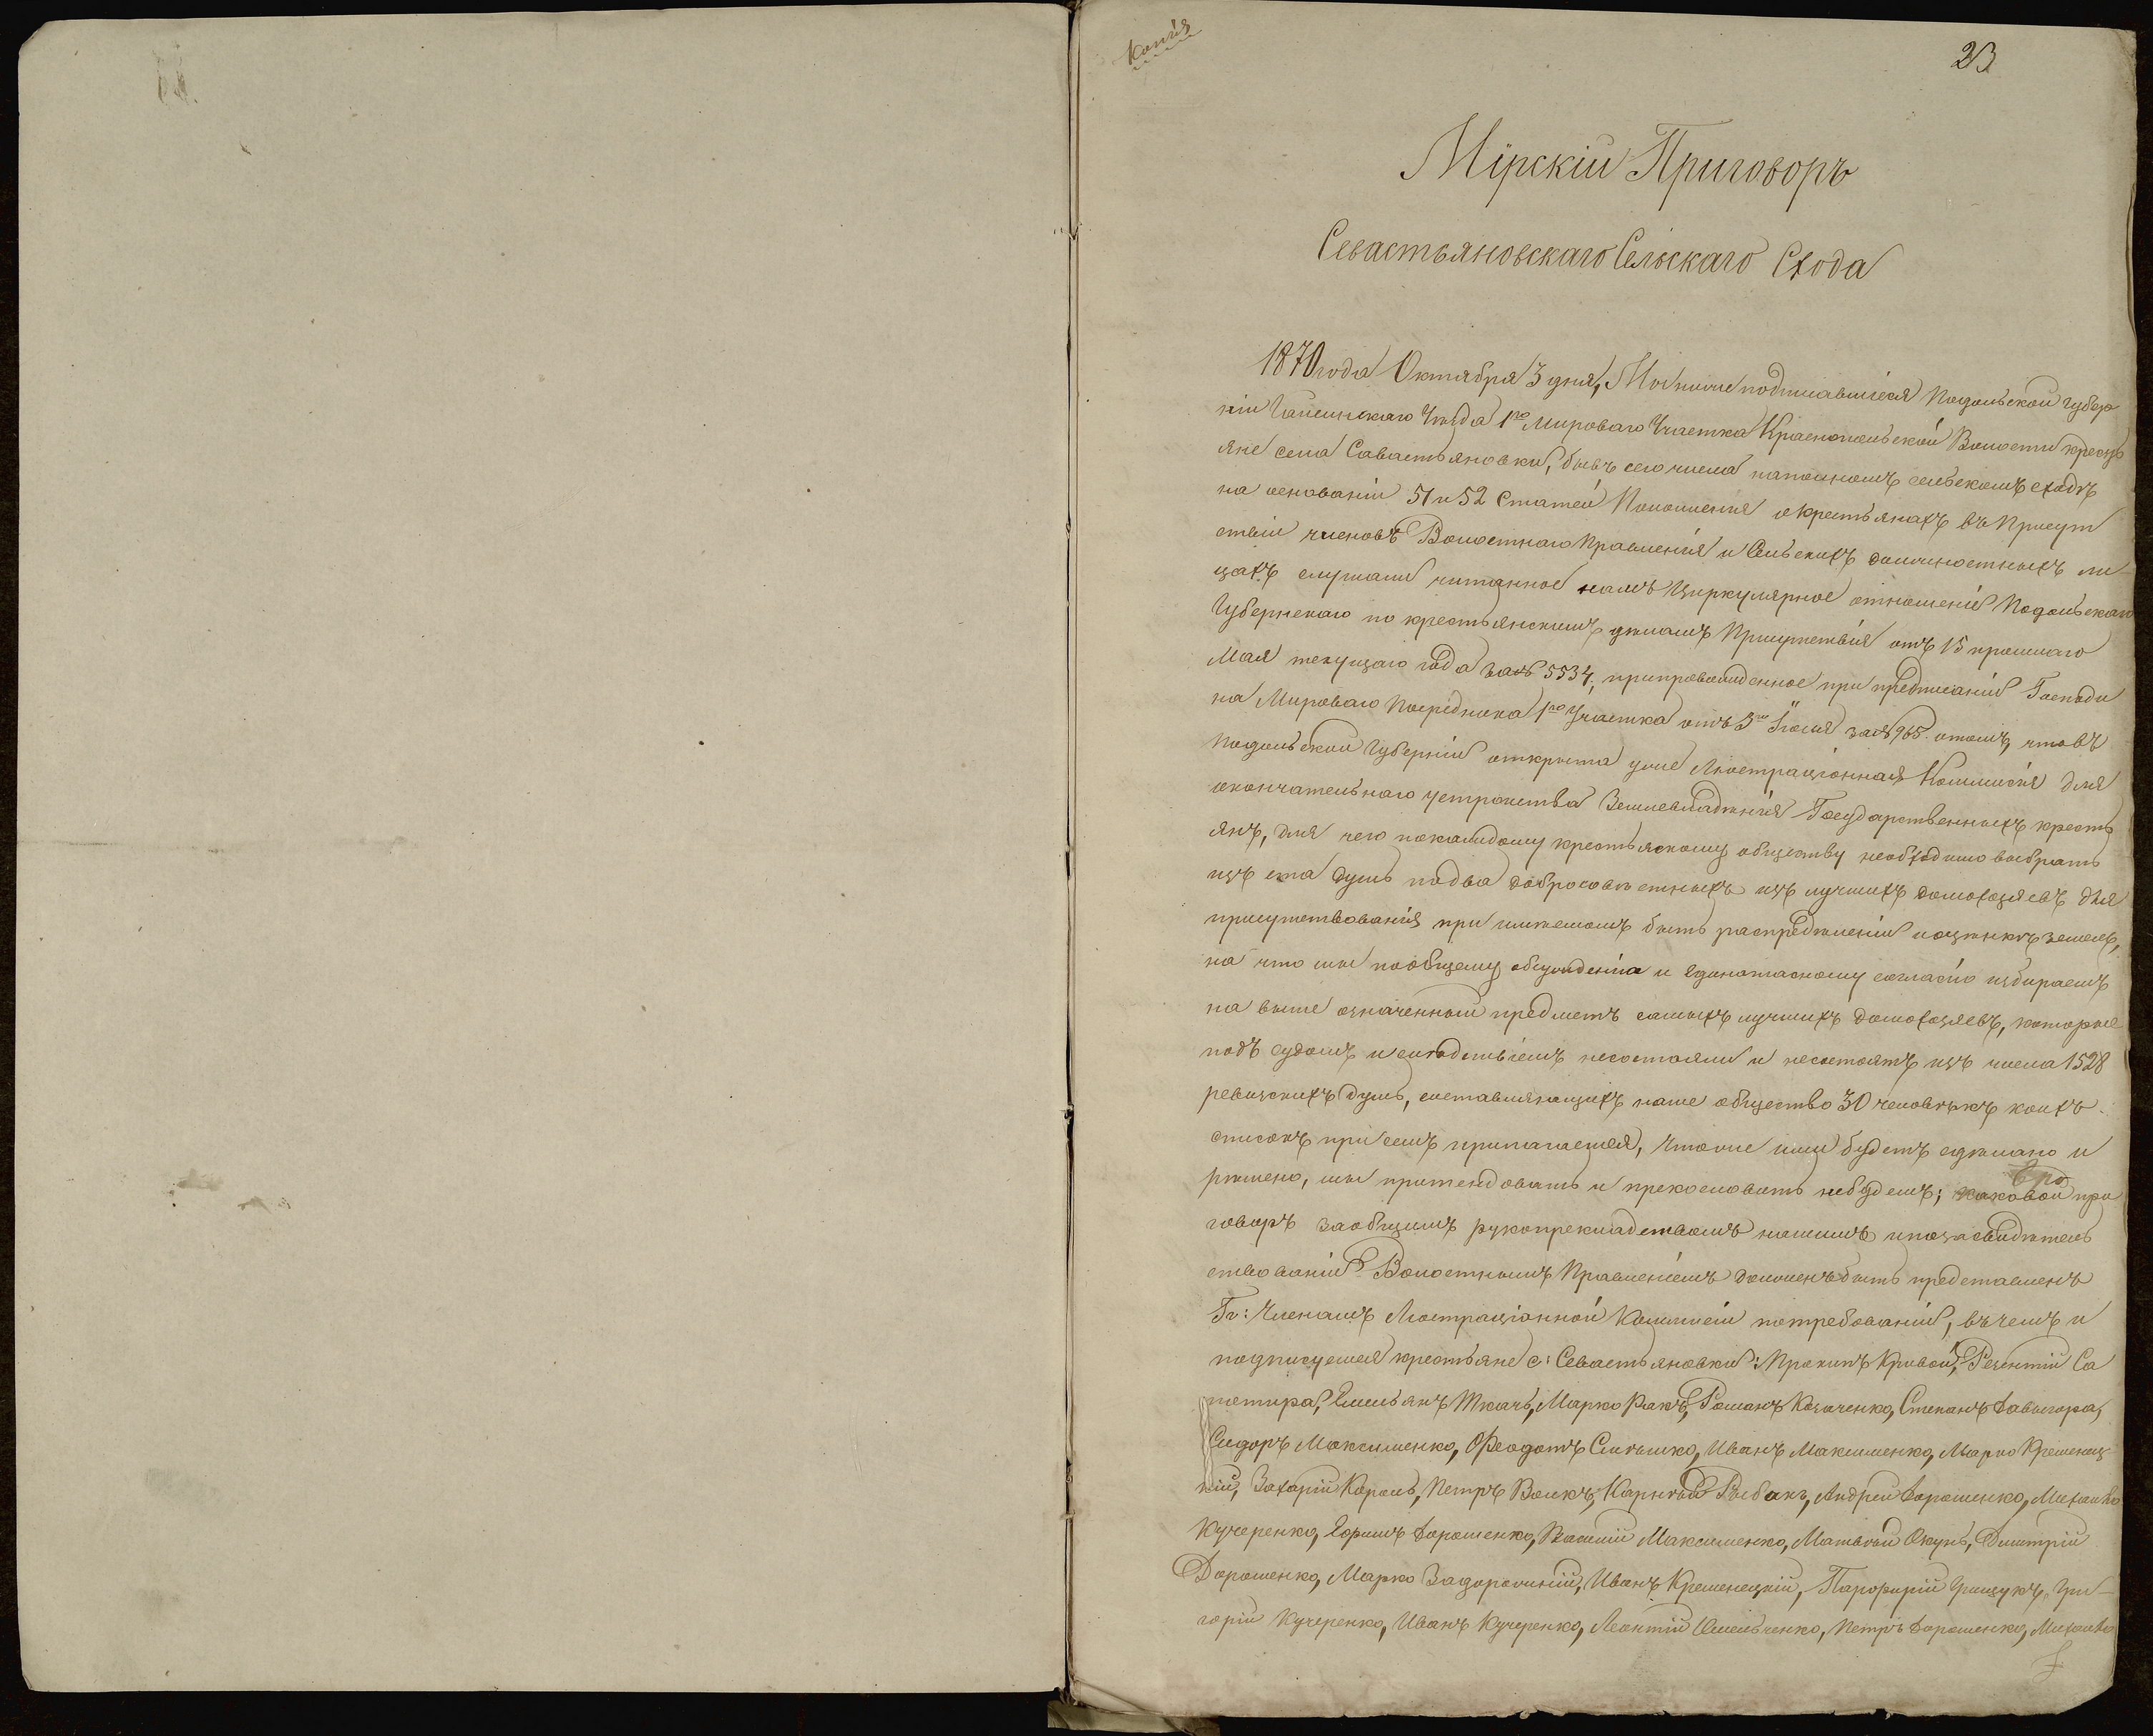 Копія
23
Мірскій Приговоръ
Севастьяновскаго Сельскаго Схода
1870 года Октября 3 дня, Мы ниже подписавшіеся Подольской Губер
ніи Гайсинскаго Уѣзда 1го Мироваго Участка Краснопольской Волости кресть
яне села Савастьяновки, бывъ сего числа наполномъ сельскомъ сходѣ
на основаніи 51 и 52 Статей Положенія окрестьянахъ въ Присут
ствіи членовъ Волостнаго Правленія и Сельскихъ должностныхъ ли-
цахъ слушали читанное намъ Циркулярное отношеніе Подольскаго
Губернскаго по крестьянскимъ дѣламъ Присутствія отъ 15 прошлаго
Мая текущаго года за № 5534, припровожденное при предписаніи Господи
на Мироваго Посредника 1го Участка отъ 3го Іюля за № 965. отомъ, чтовъ
Подольской Губерніи открыта уже Люстраціонная Коммисія для
окончательнаго устройства Землевладѣнія Государственныхъ кресть
янъ, для чего покаждому крестьянскому обществу необходимо выбрать
изъ ста душъ подва добросовѣстныхъ изъ лучшихъ домохозяевъ для
присутствованія при имѣемомъ быть распредѣленіи иоцѣнкѣ земель,
на что мы пообщему обсужденію и единогласному согласію избираемъ
на выше означенный предметъ самыхъ лучшихъ домохозяевъ, которые
подъ судомъ и слѣдствіемъ несостояли и несостоятъ изъ числа 1528
ревизскихъ душъ, составляющихъ наше общество 30 человѣкъ коихъ
списокъ при семъ прилагается, Чтоже ими будетъ сдѣлано и
рѣшено, мы притендовать и прекословить небудемъ; каковой при
говоръ заобщимъ рукоприкладствомъ нашимъ ипозасвидѣтель
ствованіи Волостнымъ Правленіемъ долженъ быть представленъ
Гг: Членамъ Люстраціонной Коммисіи потребованію, въ чемъ и
подписуемся крестьяне с: Севастьяновки: Прокипъ Кривой, Терентій Са
потира, Емельянъ Ткачъ, Марко Ракъ, Романъ Козаченко, Степанъ Давигора,
Сидоръ Максименко, Феодотъ Слѣпышко, Иванъ Максименко, Марко Кременец
кій, Захарій Король, Петръ Волкъ, Карнѣй Рыбакъ, Андрей Дорошенко, Михайло
Кучеренко, Ефимъ Дорошенко, Василій Максименко, Матвѣй Окунь, Димитрій
Дорошенко, Марко Задорожній, Иванъ Кременецкій, Парфирій Грищукъ, Гри-
горій Кучеренко, Иванъ Кучеренко, Леонтій Омельченко, Петръ Дорошенко, Михайло